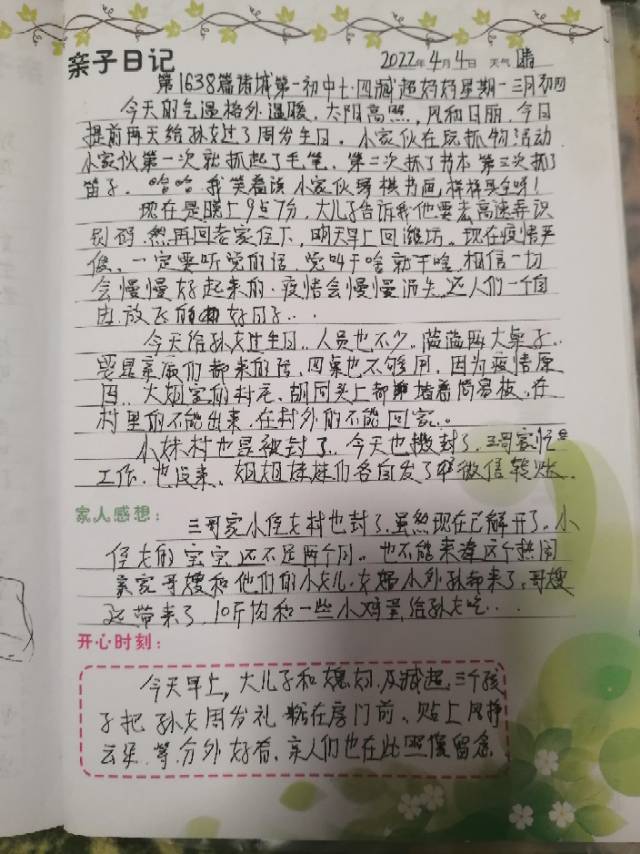 亲子日记
2022年4月4日 天气 晴
第1638篇诸城第一初中七.四臧超妈妈星期一三月初四
今天的气温格外温暖、太阳高照，风和日丽，今日
提前两天给孙女过了周岁生日。小家伙在玩抓物活动
小家伙第一次就抓起了毛笔、第二次抓了书本 第三次抓了
笛子，哈哈 我笑着说 小家伙琴棋书画样样具全呀！
现在是晚上9点7分，大儿子告诉我他要去高速弄识
别码，然再回老家住下，明天早上回潍坊。现在疫情严
峻、一定要听党的话，党叫干啥就干啥，相信一切
会慢慢好起来的，疫情会慢慢消失，还人们一个自
由放飞的好日子...
今天给孙女过生日..人员也不少。满满两大桌子..
要是亲戚们都来的话，四桌也不够用，因为疫情原
因、大姐家的村庄、胡同头上都堵着简易板、在
村里的不能出来，在村外的不能回家。。
小妹村也是被封了、今天也撤封了，三哥家忙
工作，也没来、姐姐妹妹们各自发了微信转账、
家人感想：
三哥家小侄女村也封了，虽然现在已解开了，小
侄女的宝宝还不足两个月。也不能来凑这个热闹
亲家哥嫂和他们的小女儿.女婿小外孙都来了，哥嫂
还带来了10斤肉和一些小鸡蛋给孙女吃...
开心时刻：
今天早上，大儿子和媳妇.及臧超三个孩
子把孙女周岁礼 摆在房门前、贴上
等，分外好看，亲人们也在此照像留念